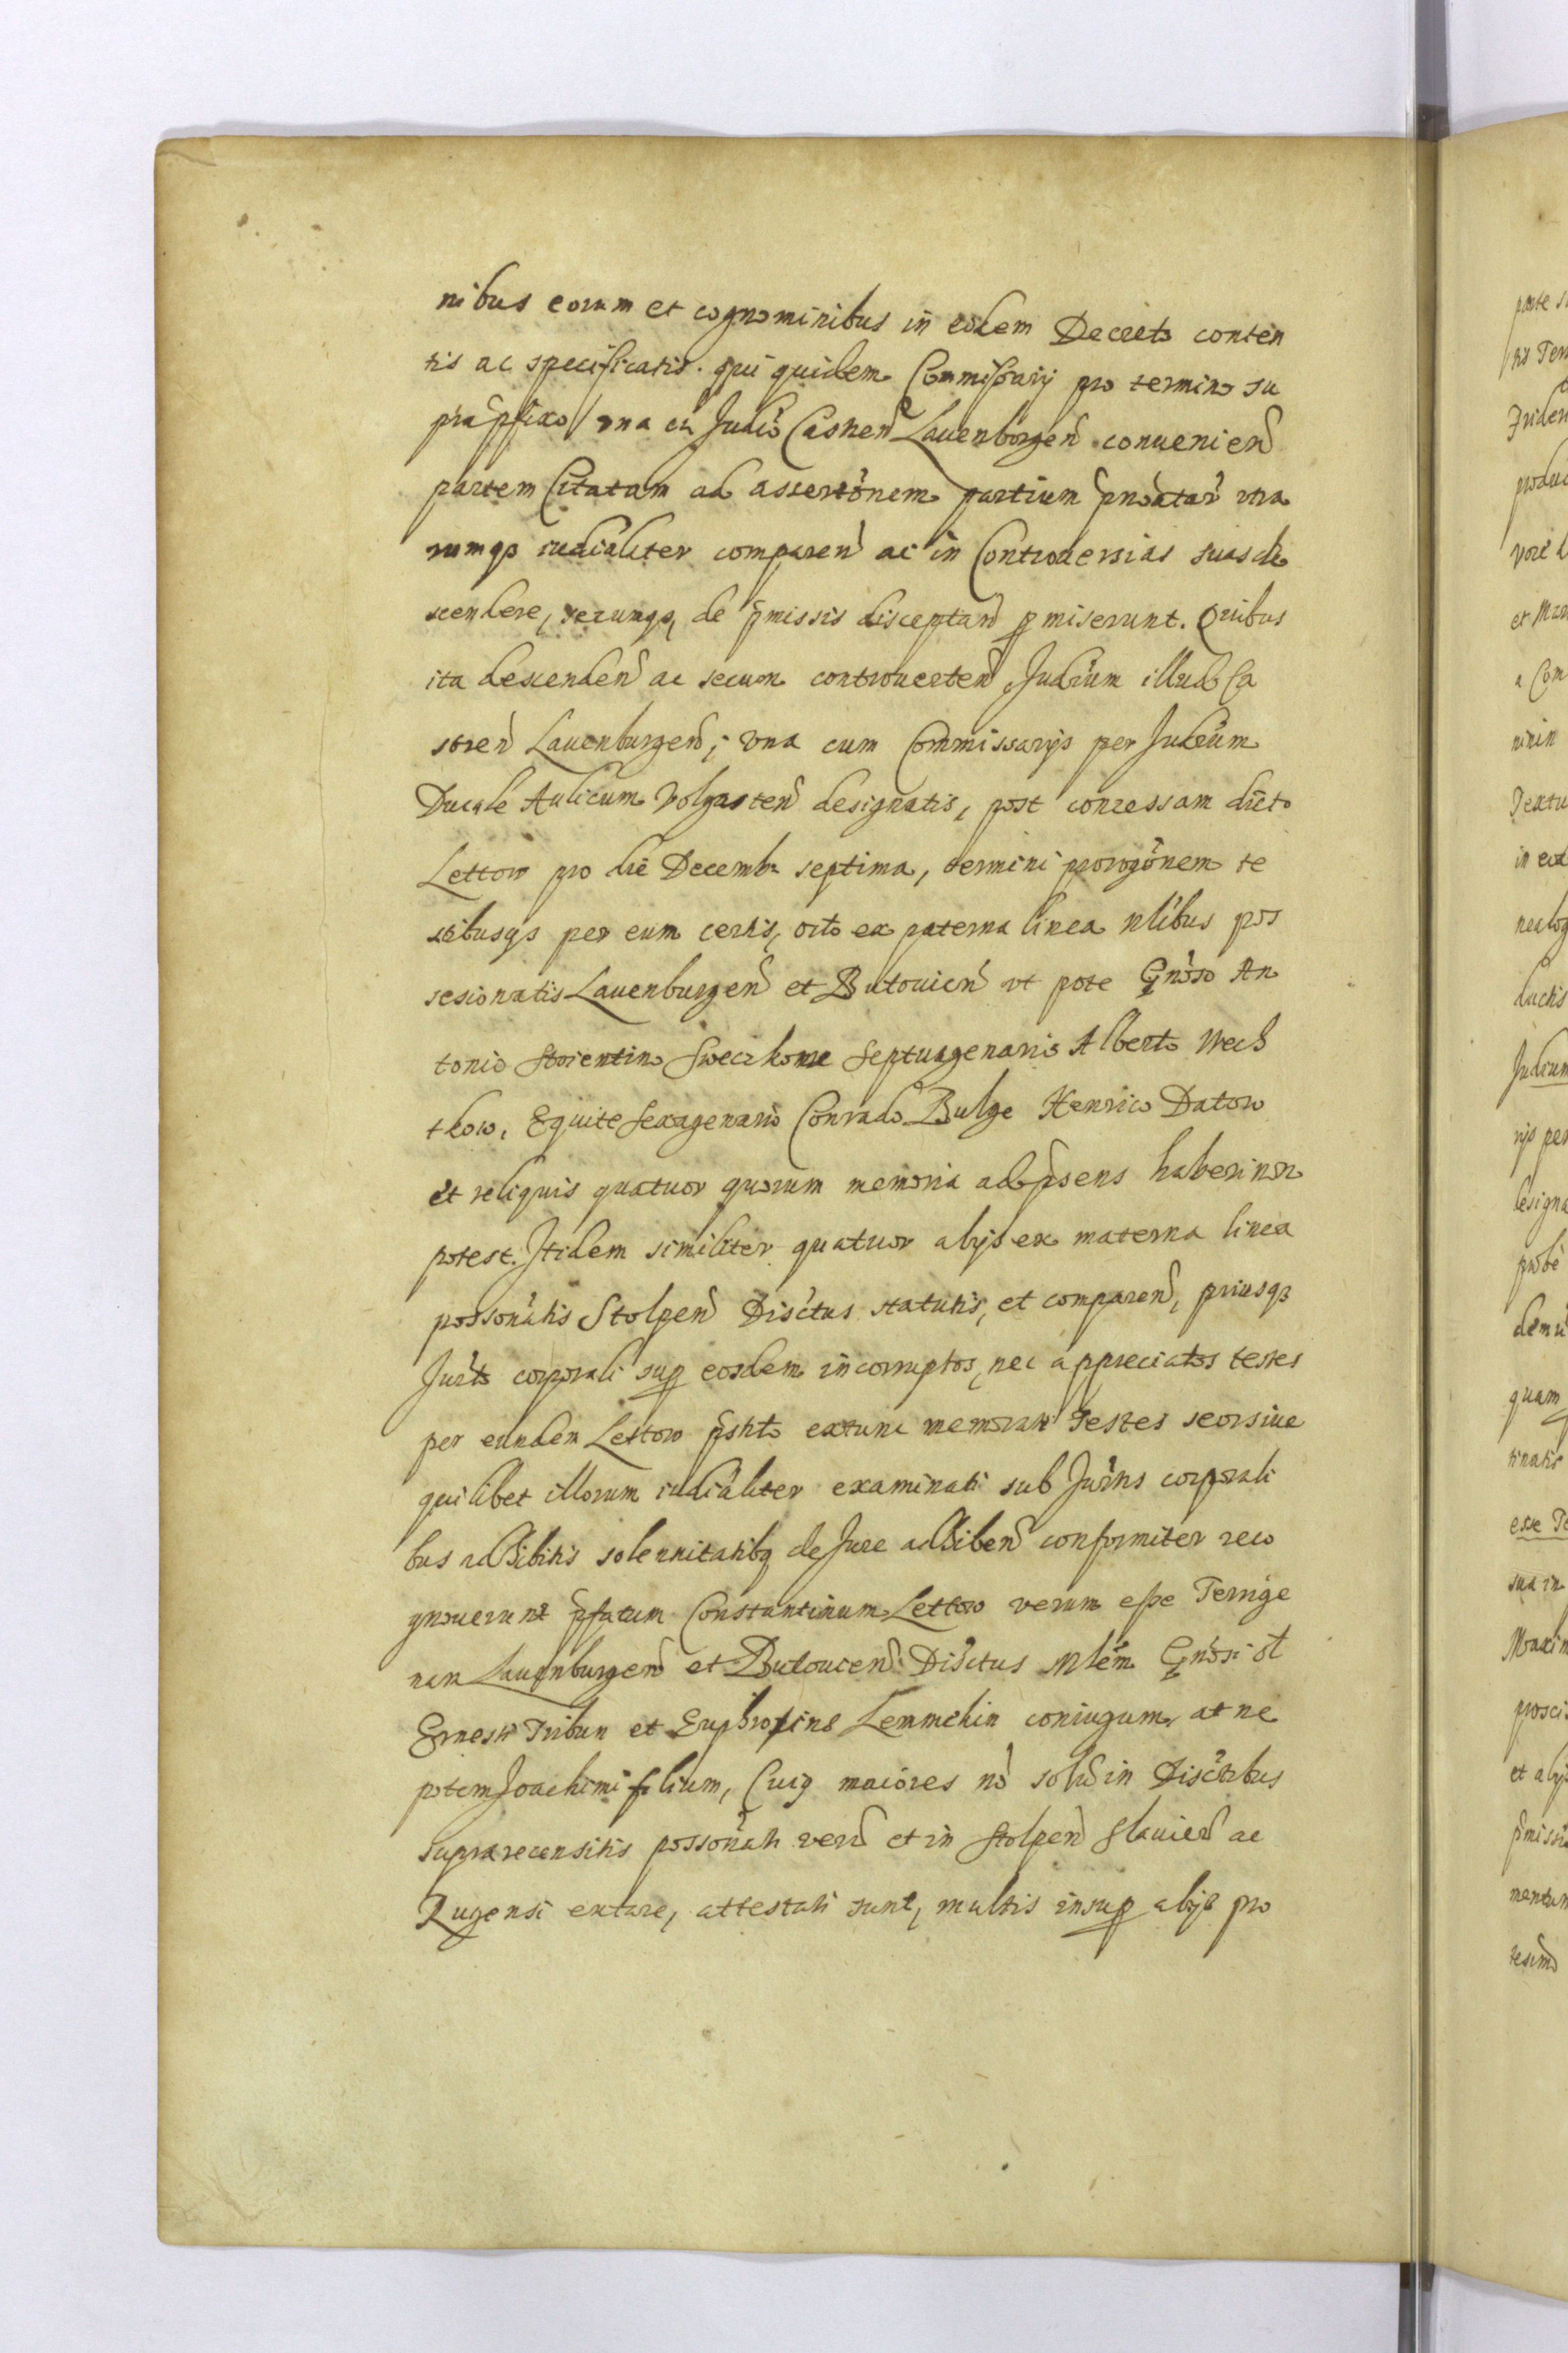 nibus eorum et cognominibus in eodem Decreto conten
tis ac specificatis. qui quidem Commissarij pro termino su
pra pfixo una cū Judio Castren Lauenburgen conuenien
partem Citatam ad assertonem partium pnoatar utra
rumqs iudialiter comparen ac in Controuersias suas de
scendere, secumqs, de pmissis disceptan pmiserunt. Quibus
ita descenden ac secum controuerten Judium illud Ca
stren Lauenburgen; vna cum Commissarijs per Judium
Ducale Aulicum Volgasten designatis, post concessam dicto
Lettow pro die Decembr septima, termini prorogonem te
stibusqs per eum certis, octo ex paterna linea nlibus pos
sesionatis Lauenburgen et Butouien vt pote Gnoso An
tonio Storentin Sweczkome Septuagenario Alberto Wech
tkow, Equite Sexagenario Conrado Bulge Henrico Datow
et reliquis quatuor quorum memoria ad psens haberi non
potest. Itidem similiter quatuor alijs ex materna linea
possonatis Stolpen Disctus statutis, et comparen, priusqs
Jurto corporali sup eosdem incorruptos, nec appreciatos testes
per eundem Lettow pstito extunc memorati Testes seorsiue
quilibet illorum iudialiter examinati sub Jurtis corporali
bus adhibitis solennitatibq de Jure adhiben conformiter reco
gnouerunt pfatum Constantinum Lettow verum esse Terrige
nam Lauenburgen et Butouien Disctus Nlem Gnosi ol
Ernesti Tribun et Euphrosine Lemmchin coniugum, at ne
potem Joachimi filium, Cuig maiores no solu in Disctibus
supra recensitis possonati veru et in Stolpen Slauien ac
Rugensi extare, attestati sunt, multis insup alijs pro